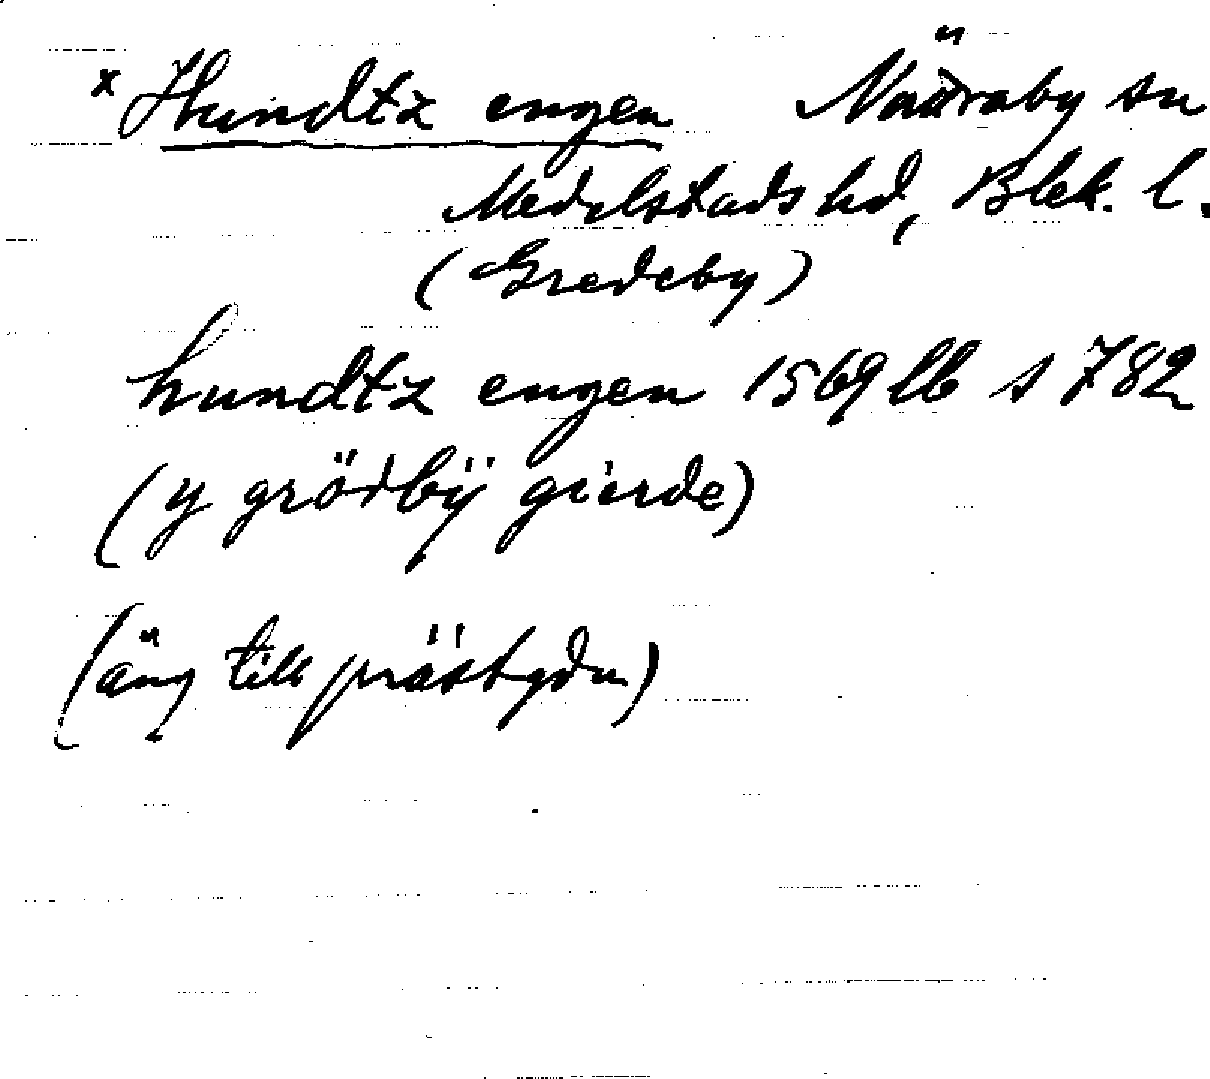 x Hundtz engen Nättraby sn
Medelstads hd, Blek. l.
(Gredeby)
hundtz engen 1569 lb s 782
(y grödbÿ gierde)
(äng till prästgdn)